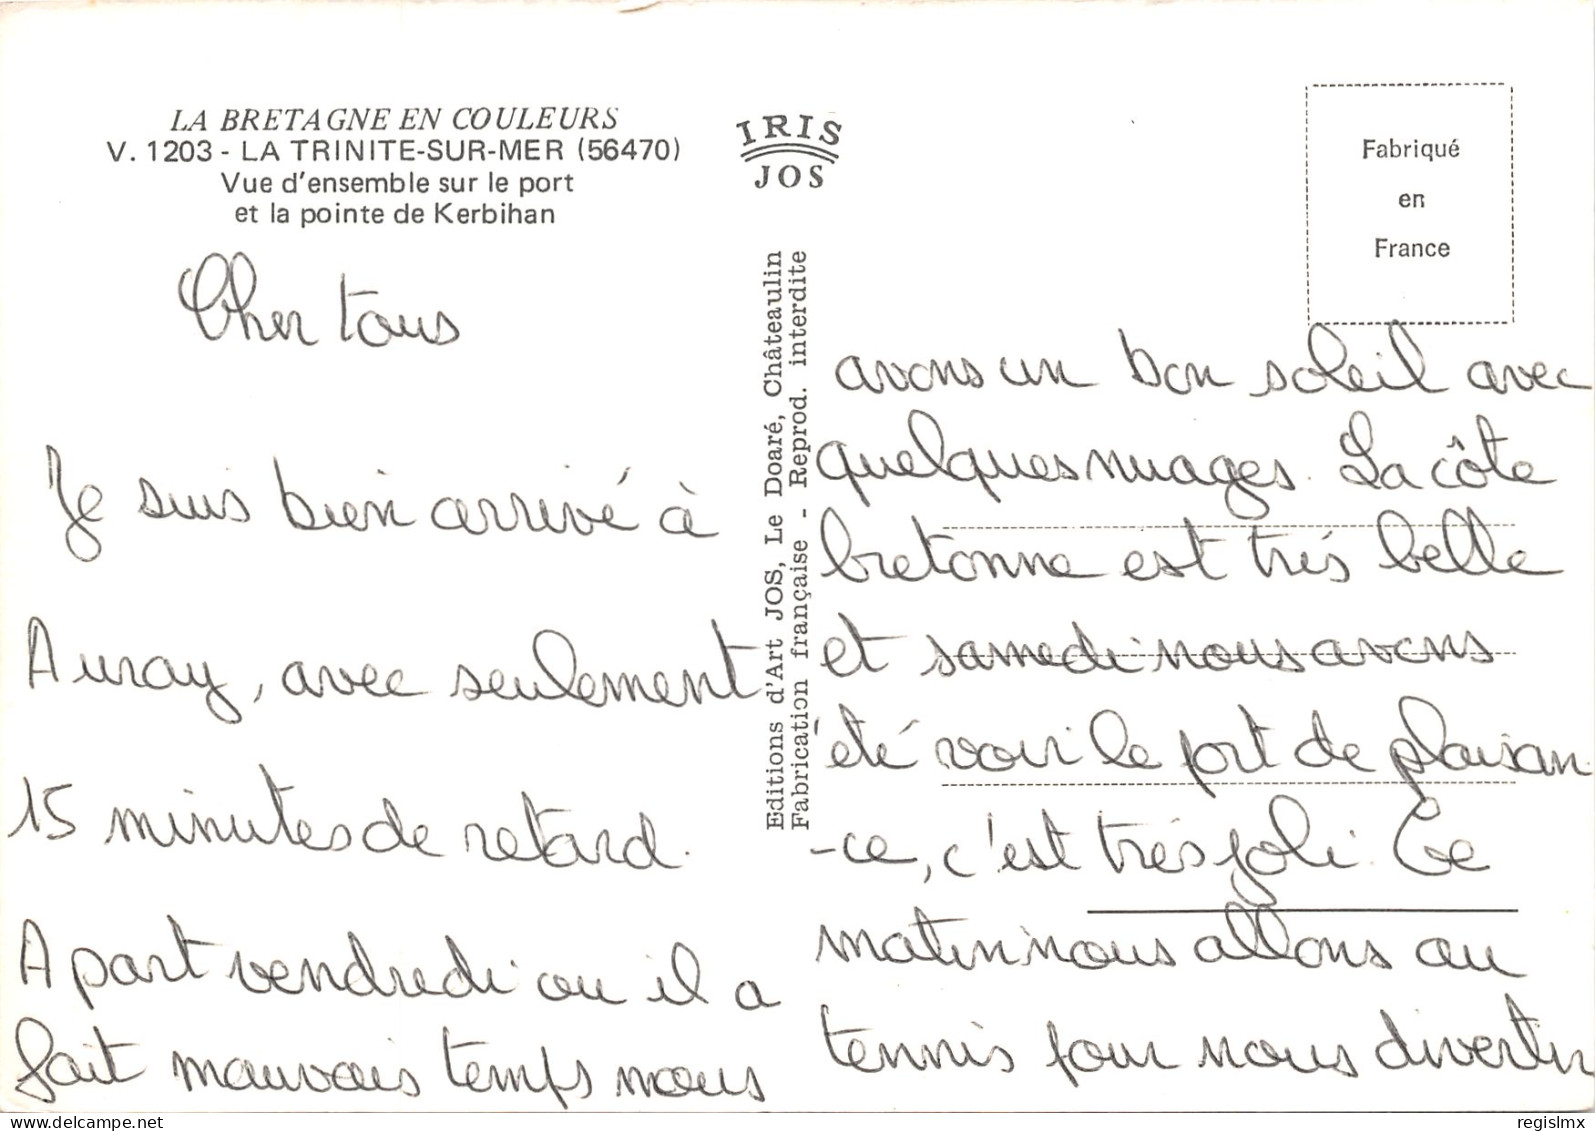 LA BRETAGNE EN COULEURS
V. 1203 - LA TRINITE-SUR-MER (56470)
Vue d'ensemble sur le port
et la pointe de Kerbihan
IRIS
JOS
Fabriqué
en
France
Editions d'Art JOS, Le Doaré, Châteaulin
Fabrication française - Reprod. interdite
Cher tous
Je suis bien arrivé à
Auray, avec seulement
15 minutes de retard.
A part vendredi ou il a
fait mauvais temps nous
avons un bon soleil avec
quelques nuages. La côte
bretonne est très belle
et samedi nous avons
été voir le port de plaisan
-ce, c'est très joli. Ce
matin nous allons au
tennis pour nous divertir
delcampe.net
regislmx